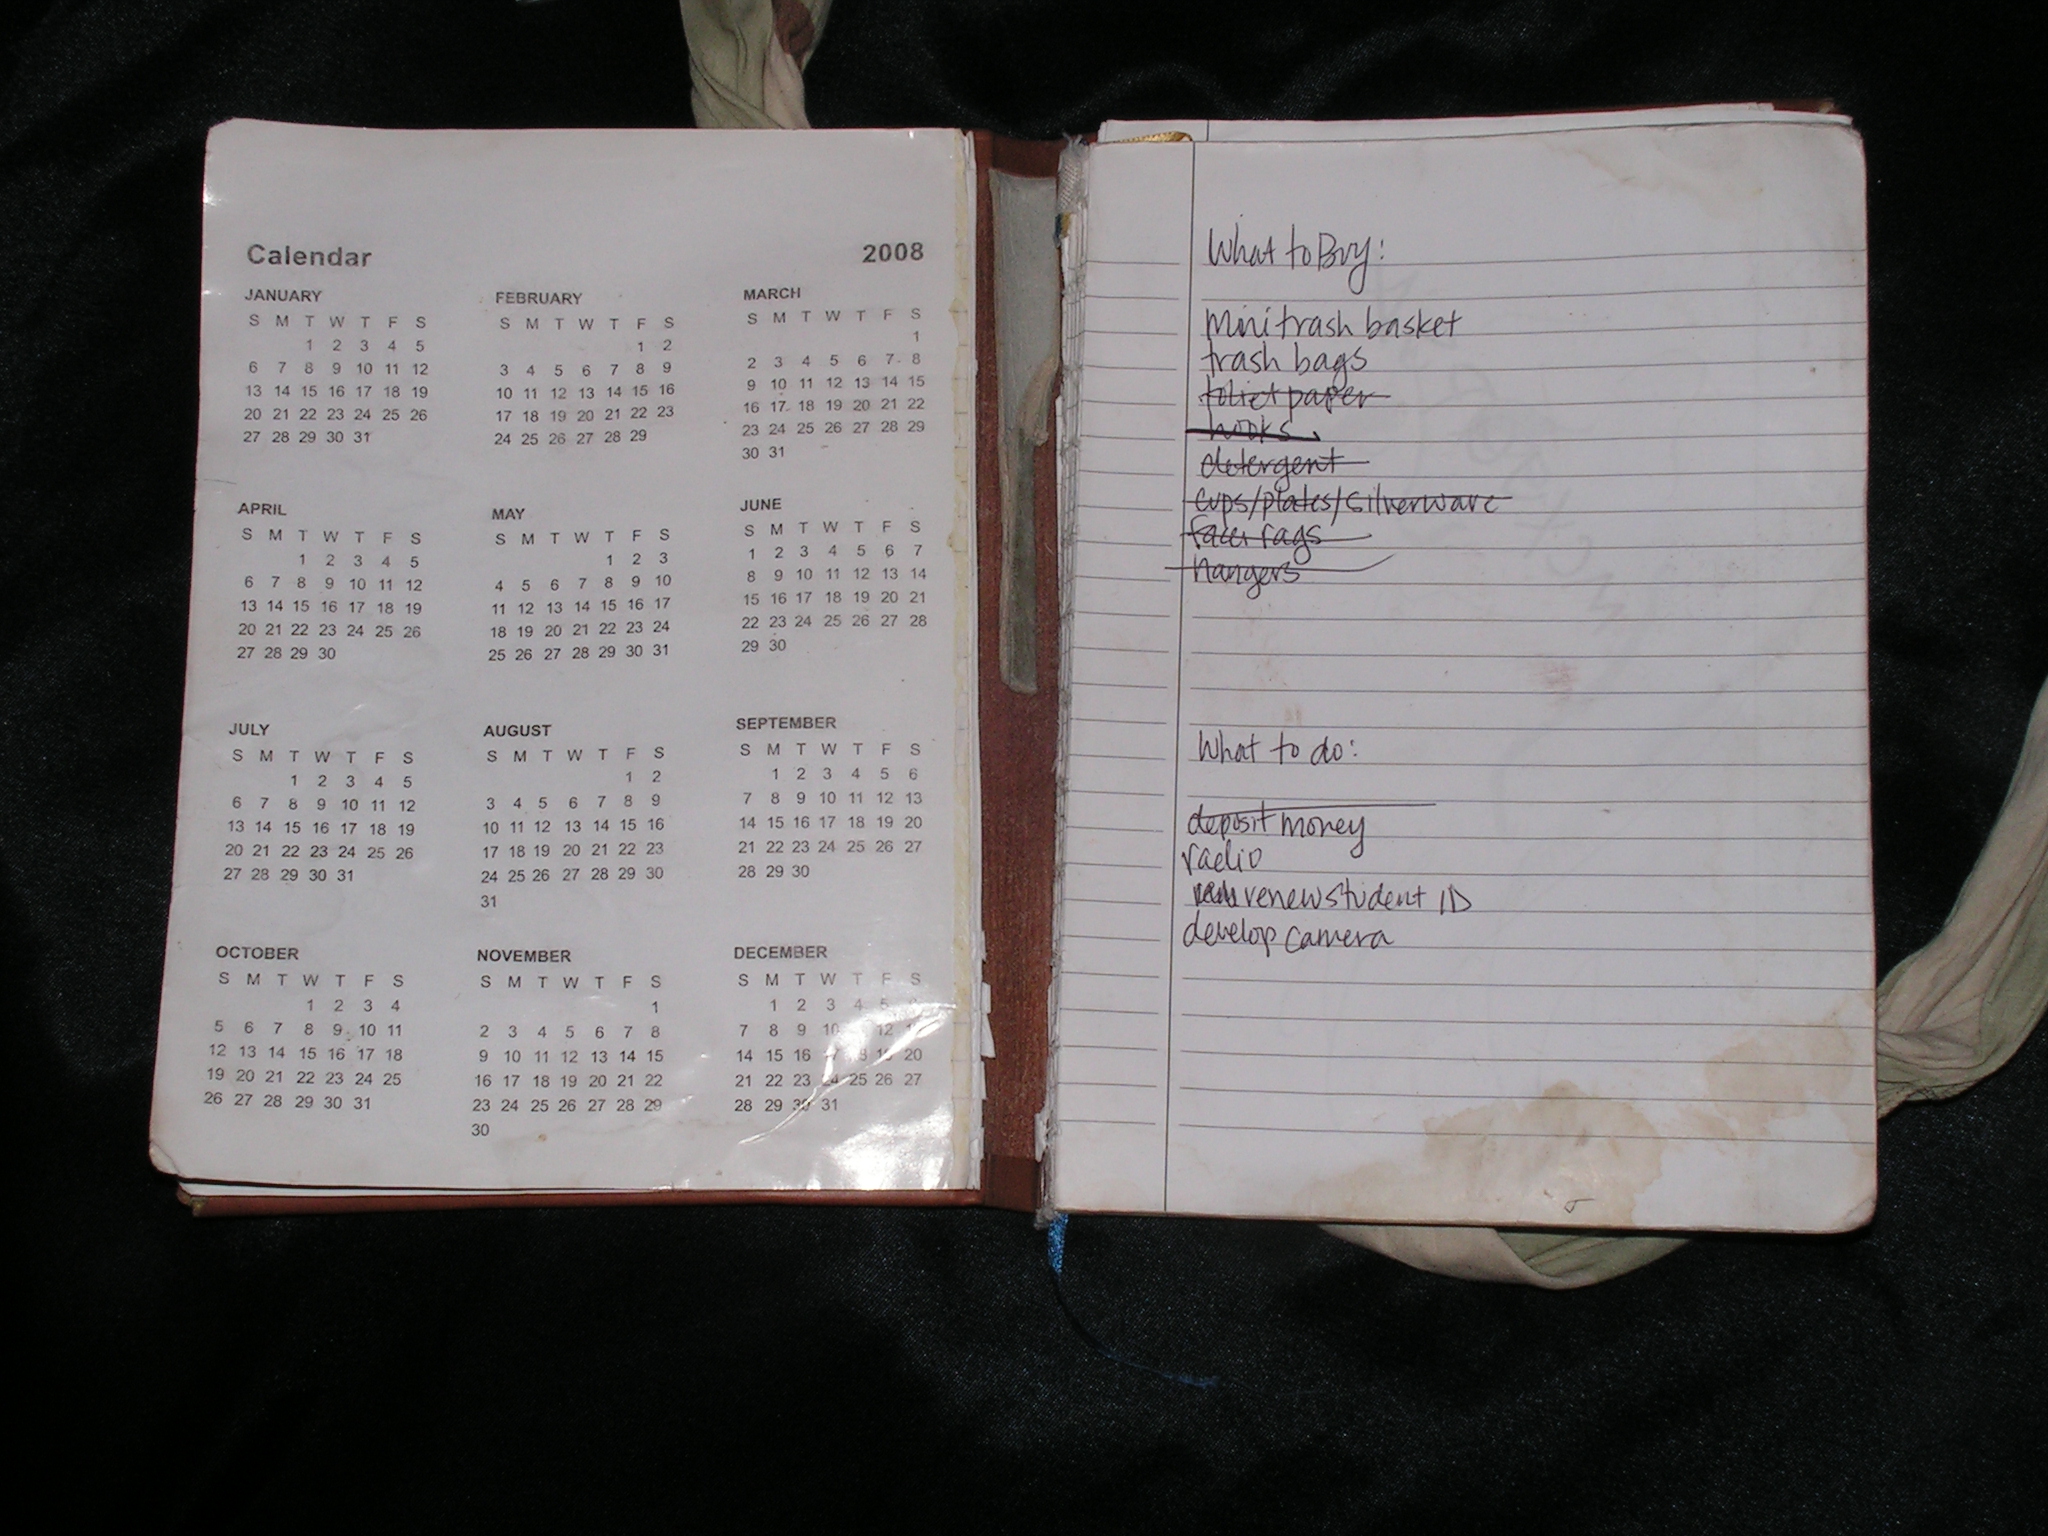 Calendar 2008
JANUARY
S M T W T F S
1 2 3 4 5
6 7 8 9 10 11 12
13 14 15 16 17 18 19
20 21 22 23 24 25 26
27 28 29 30 31
FEBRUARY
S M T W T F S
1 2
3 4 5 6 7 8 9
10 11 12 13 14 15 16
17 18 19 20 21 22 23
24 25 26 27 28 29
MARCH
S M T W T F S
1
2 3 4 5 6 7 8
9 10 11 12 13 14 15
16 17 18 19 20 21 22
23 24 25 26 27 28 29
30 31
APRIL
S M T W T F S
1 2 3 4 5
6 7 8 9 10 11 12
13 14 15 16 17 18 19
20 21 22 23 24 25 26
27 28 29 30
MAY
S M T W T F S
1 2 3
4 5 6 7 8 9 10
11 12 13 14 15 16 17
18 19 20 21 22 23 24
25 26 27 28 29 30 31
JUNE
S M T W T F S
1 2 3 4 5 6 7
8 9 10 11 12 13 14
15 16 17 18 19 20 21
22 23 24 25 26 27 28
29 30
JULY
S M T W T F S
1 2 3 4 5
6 7 8 9 10 11 12
13 14 15 16 17 18 19
20 21 22 23 24 25 26
27 28 29 30 31
AUGUST
S M T W T F S
1 2
3 4 5 6 7 8 9
10 11 12 13 14 15 16
17 18 19 20 21 22 23
24 25 26 27 28 29 30
31
SEPTEMBER
S M T W T F S
1 2 3 4 5 6
7 8 9 10 11 12 13
14 15 16 17 18 19 20
21 22 23 24 25 26 27
28 29 30
OCTOBER
S M T W T F S
1 2 3 4
5 6 7 8 9 10 11
12 13 14 15 16 17 18
19 20 21 22 23 24 25
26 27 28 29 30 31
NOVEMBER
S M T W T F S
1
2 3 4 5 6 7 8
9 10 11 12 13 14 15
16 17 18 19 20 21 22
23 24 25 26 27 28 29
30
DECEMBER
S M T W T F S
1 2 3 4 5 6
7 8 9 10 12
14 15 16 17 18 19 20
21 22 23 24 25 26 27
28 29 30 31
What to Buy:
mini trash basket
trash bags
toliet paper
hooks
detergent
cups/plates/silverware
face rags
hangers
What to do:
deposit money
radio
renew student ID
develop camera